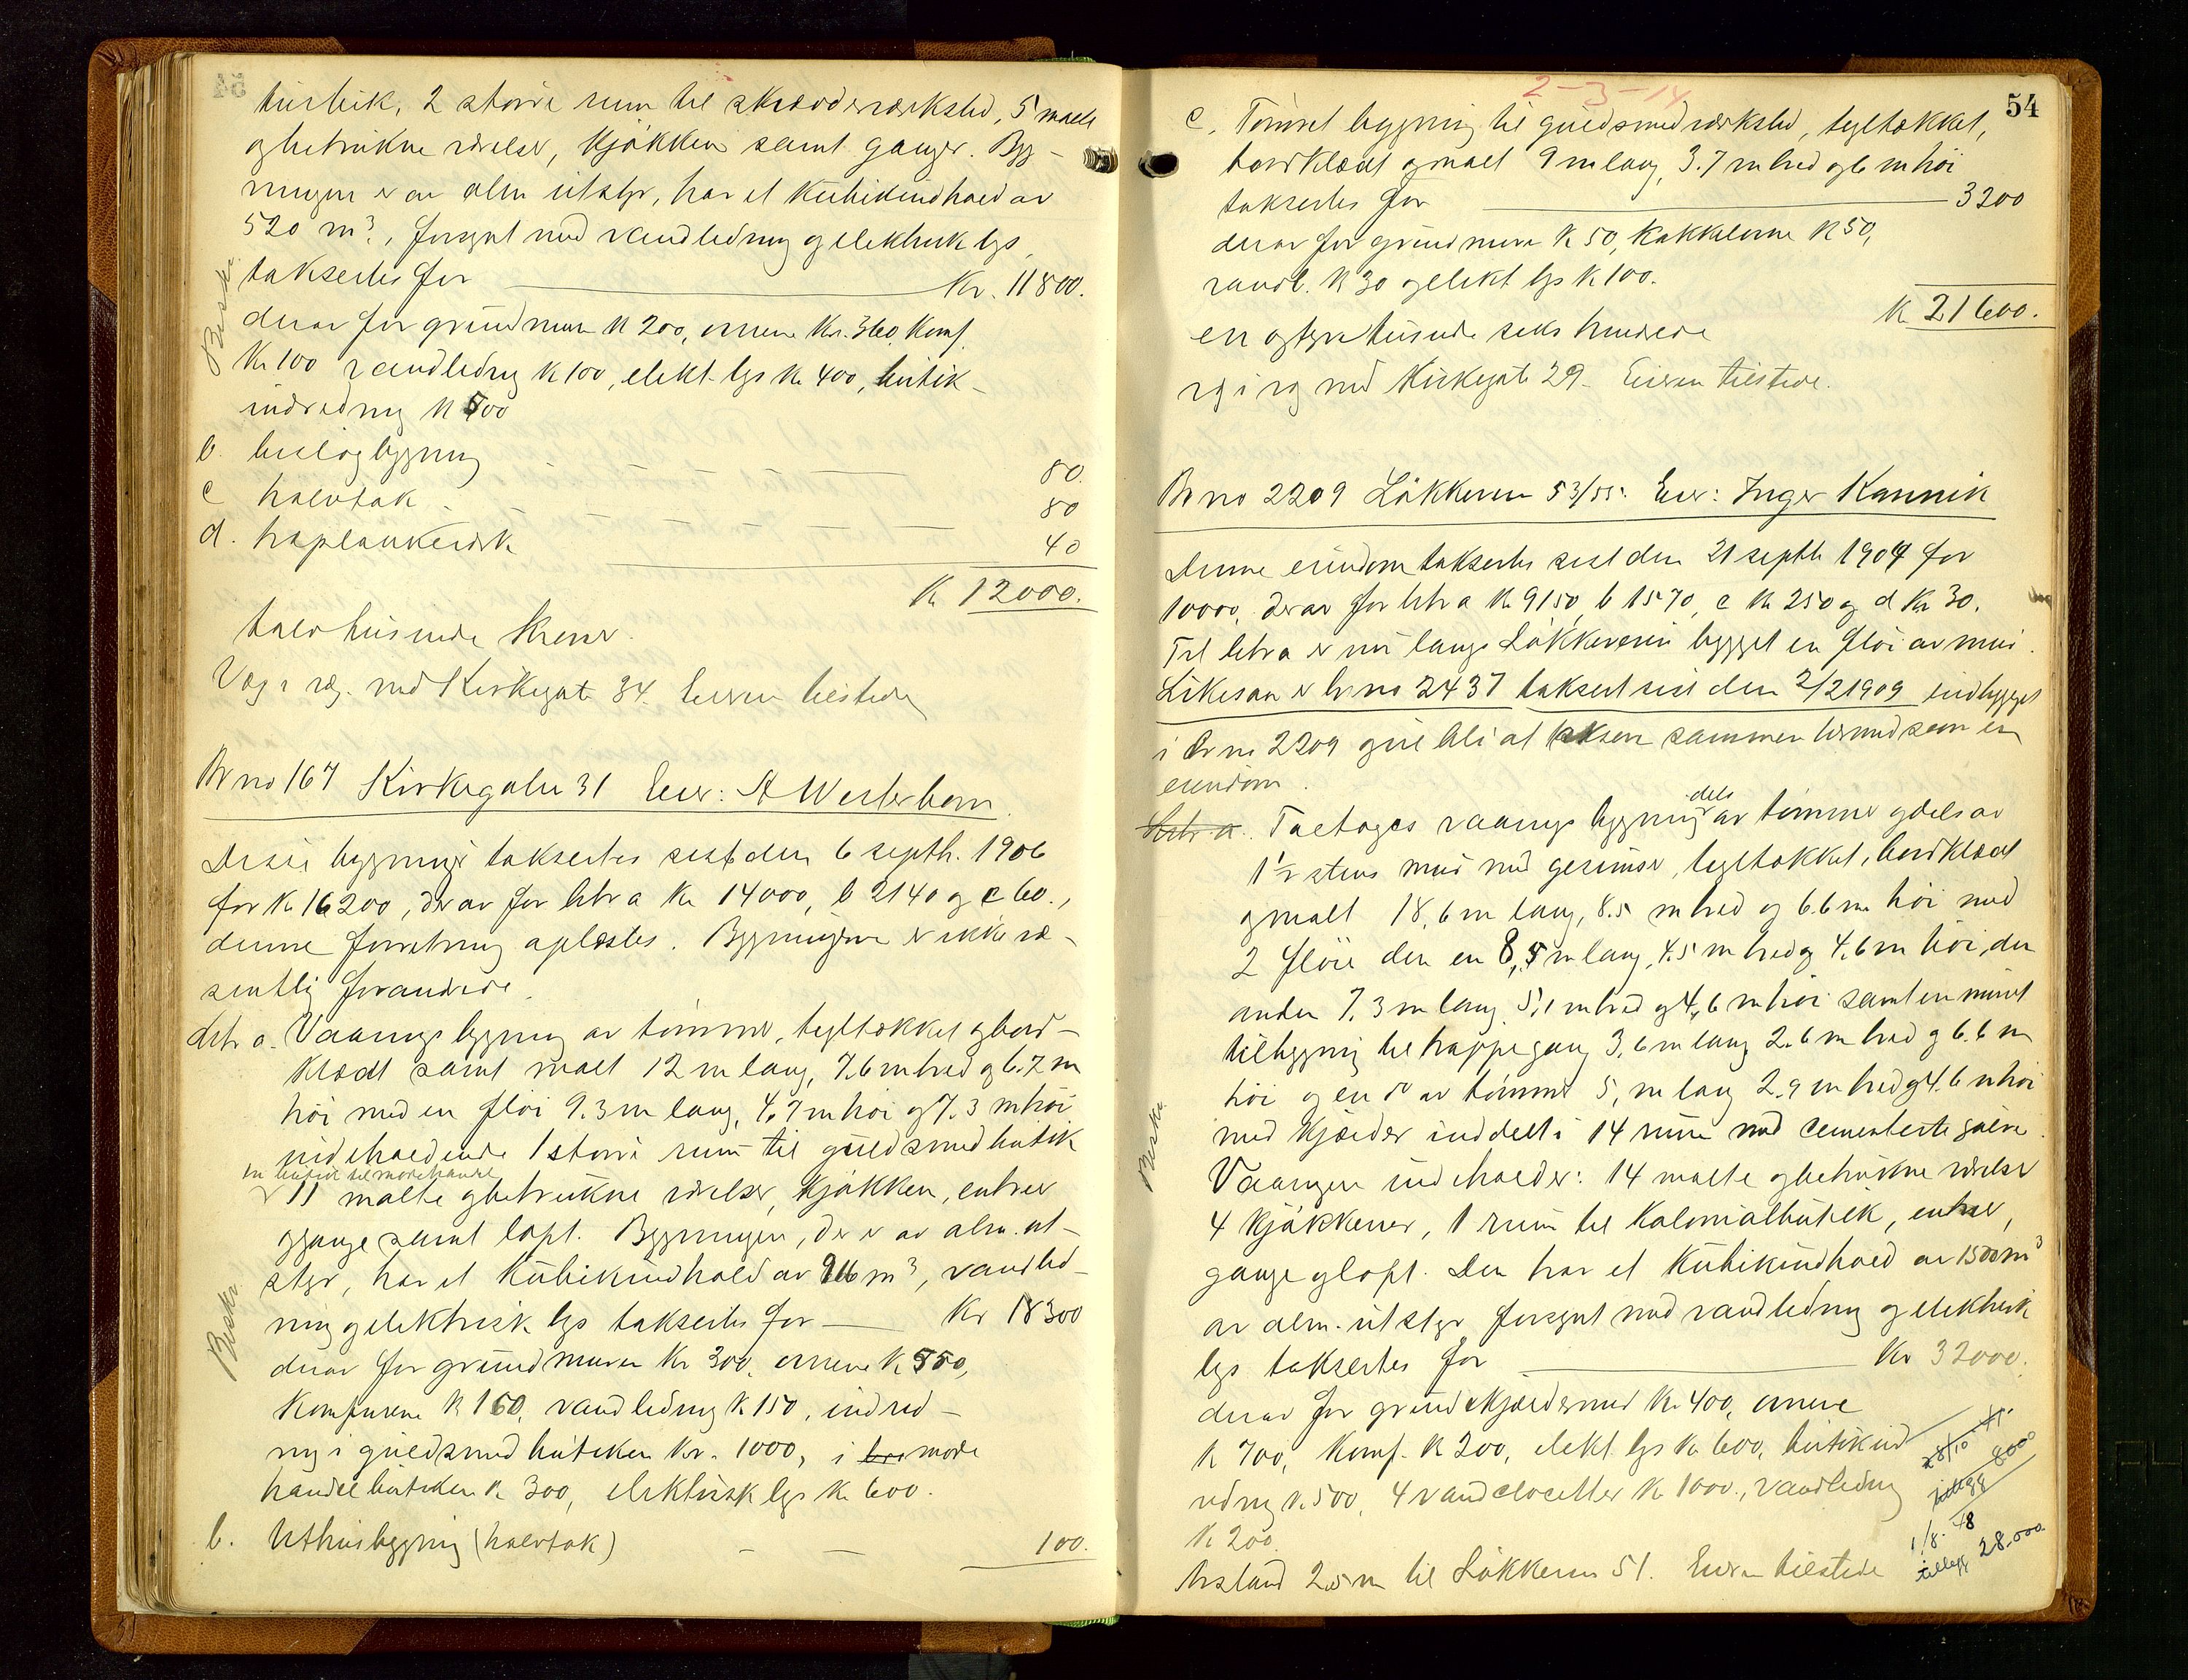 butik, 2 større rum til skrædderværksted, 5 malte
og betrukne værelser, kjøkken samt ganger. Byg-
ningen er av alm utstyr, har et kubikindhold av
520 m³, forsynt med vandledning og elektrisk lys,
taksertes for Kr. 11800.
derav for grundmure K 200, ovnene Kr. 360, Komf.
Kr 100 vandledning K 100, elekt. lys Kr 400, butik-
indredning K 500
Beskr.
b. builogbygning 80.
c halvtak 80
d. haplankeværk 40
K 12000.
tolvtusinde kroner.
Væg i væg med Kirkegate 34. Eieren tilstede
Br no 167 Kirkegaten 31 Eier: A Westerbom
Disse bygninger taksertes sist den 6 septb. 1906
for K 16200, derav for litr a Kr 14000, b 2140 og c 60.,
denne forretning oplæstes. Bygningene er ikke væ-
sentlig forandrede.
Litr a. Vaaningsbygning av tømmer, tegltækket og bord-
klædt samt malt 12 m lang, 7,6 m bred og 6.7 m
høi med en fløi 9.3 m lang, 4,7 m høi og 7.3 m høi
indeholdende 1 større rum til guldsmedbutik
en butik til motehandel
11 malte og betrukne værelser, kjøkken, entreer
og gange samt loft. Bygningen, der er av alm. ut-
styr, har et kubikindhold av 916 m³, vandled-
ning og elektrisk lys taksertes for Kr 18300
derav for grundmuren Kr 300, ovnene K 550,
Komfurene K 160, vandledning K 150, indred-
ng i guldsmedbutiken Kr. 1000, i mote
handelbutiken K 300, elektrisk lys K 600.
Beskr.
b. Uthusbygning (halvtak) 100.
2-3-14
54
c. Tømret bygning til guldsmedværksted, tegltækket,
bordklædt og malt 9 m lang, 3.7 m bred og 6 m høi
taksertes for 3200
derav for grundmure K 50, kakkelovne K 50,
vandl. K 30 og elekt lys K 100.
K 21600.
en og tyve tusinde seks hundrede
væg i væg med Kirkegate 29. Eieren tilstede.
Br no 2209 Løkkeveien 53/55. Eier: Inger Kannik
Denne eiendom taksertes sist den 21 septb 1904 for
10000, derav for litr a Kr 9150, b 1570, c Kr 250 og d Kr 30.
Til litr a er nu langs Løkkeveien bygget en fløi av mur.
Likesaa er br no 2437 taksert sist den 2/2 1909 indbygget
i br no 2209 og vil bli at taksere sammen hermed som en
eiendom.
Litr a. Toetages vaaningsbygning dels av tømmer og dels av
1½ stens mur med gesimser, tegltækket, bordklædt
og malt 18,6 m lang, 8.5 m bred og 6.6 m høi med
2 fløie den en 8,5 m lang, 4.5 m bred og 4,6 m høi, den
anden 7.3 m lang, 5,1 m bred og 4,6 m høi samt en muret
tilbygning til trappegang 3,6 m lang 2.6 m bred og 6.6 m
høi og en do av tømmer 5, m lang 2.9 m bred og 4.6 m høi
med kjælder inddelt i 14 rum med cementerte gulve.
Vaaningen indeholder: 14 malte og betrukne værelser
4 kjøkkener, 1 rum til Kolonialbutik, entreer,
gange og loft. Den har et kubikindhold av 1500 m³
av alm. utstyr forsynt med vandledning og elektrisk
lys taksertes for Kr 32000.
Beskr.
derav for grund & kjældermur Kr 400, ovnene
K 700, Komf. K 200, elekt. lys Kr 600, butikind-
redning K 500, 4 vandclosetter Kr 1000., vandledning
K 200.
Avstand 2.5 m til Løkkeveien 51. Eieren tilstede
28/10 41.
tillegg 8000
1/8. 48
tillegg 28.000